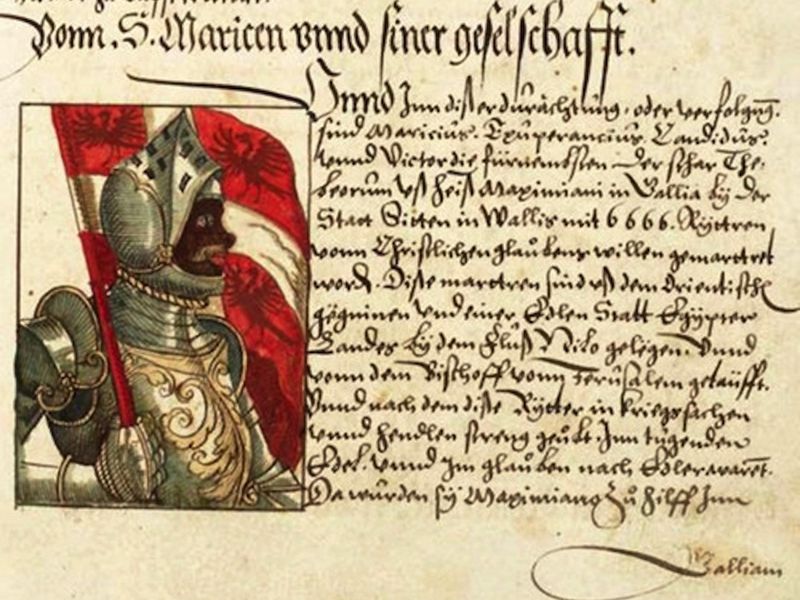 Vonn. S. Maricen vnnd siner geselschafft.
Vnnd Jnn diser durächtung, oder verfolgūg.
sind Maricius. Exuperancius. Candidus.
vnnd Victor die fürnembsten der schar The,
beorum vß heiß Maximiani in Gallia by der
Statt Sitten in Wallis mit 6666. Ryttren
vonn Christlichen glaubens willen gemarttret
word. Dise marttren sind vß dem Orientisch
geginen vnd einer Edlen Statt Egypter
Landes by dem fluß Nilo gelegen. Vnnd
vonn dem Bischoff vonn Jerusalem getäufft.
Vnnd nach dem dise Rytter in kriegssachen
vnnd hendlen streng geübt. Jnn tugenden
Edel. vnnd jm glauben nach Edler
Da wurden sy Maximiano zu hilff Jnn
Galliam